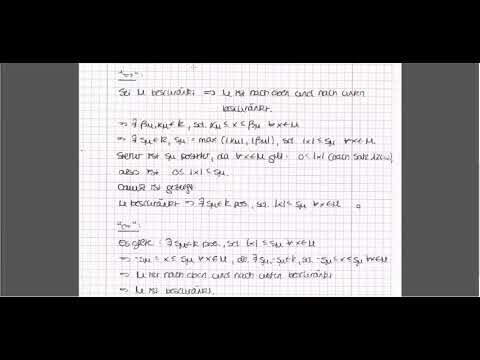 "⇒":
Sei M beschränkt ⇒ M ist nach oben und nach unten
beschränkt.
⇒ ∃ βM, κM ∈ K, sd. κM ≤ x ≤ βM ∀x∈M
⇒ ∃ SM ∈ K, SM = max (|κM|, |βM|), sd. |x| ≤ SM ∀x∈M.
SM positiv, da ∀x∈M gilt: 0 ≤ |x| (nach Satz
also ist 0 ≤ |x| ≤ SM.
Damit ist gezeigt:
M beschränkt ⇒ ∃ SM ∈ K pos., sd. |x| ≤ SM ∀x∈M
"⇐":
Es gelte: ∃ SM ∈ K pos., sd. |x| ≤ SM ∀x∈M
⇒ -SM ≤ x ≤ SM ∀x∈M, ∃ SM, -SM ∈ K, sd. -SM ≤ x ≤ SM ∀x∈M
⇒ M ist nach oben und nach unten beschränkt
⇒ M ist beschränkt.